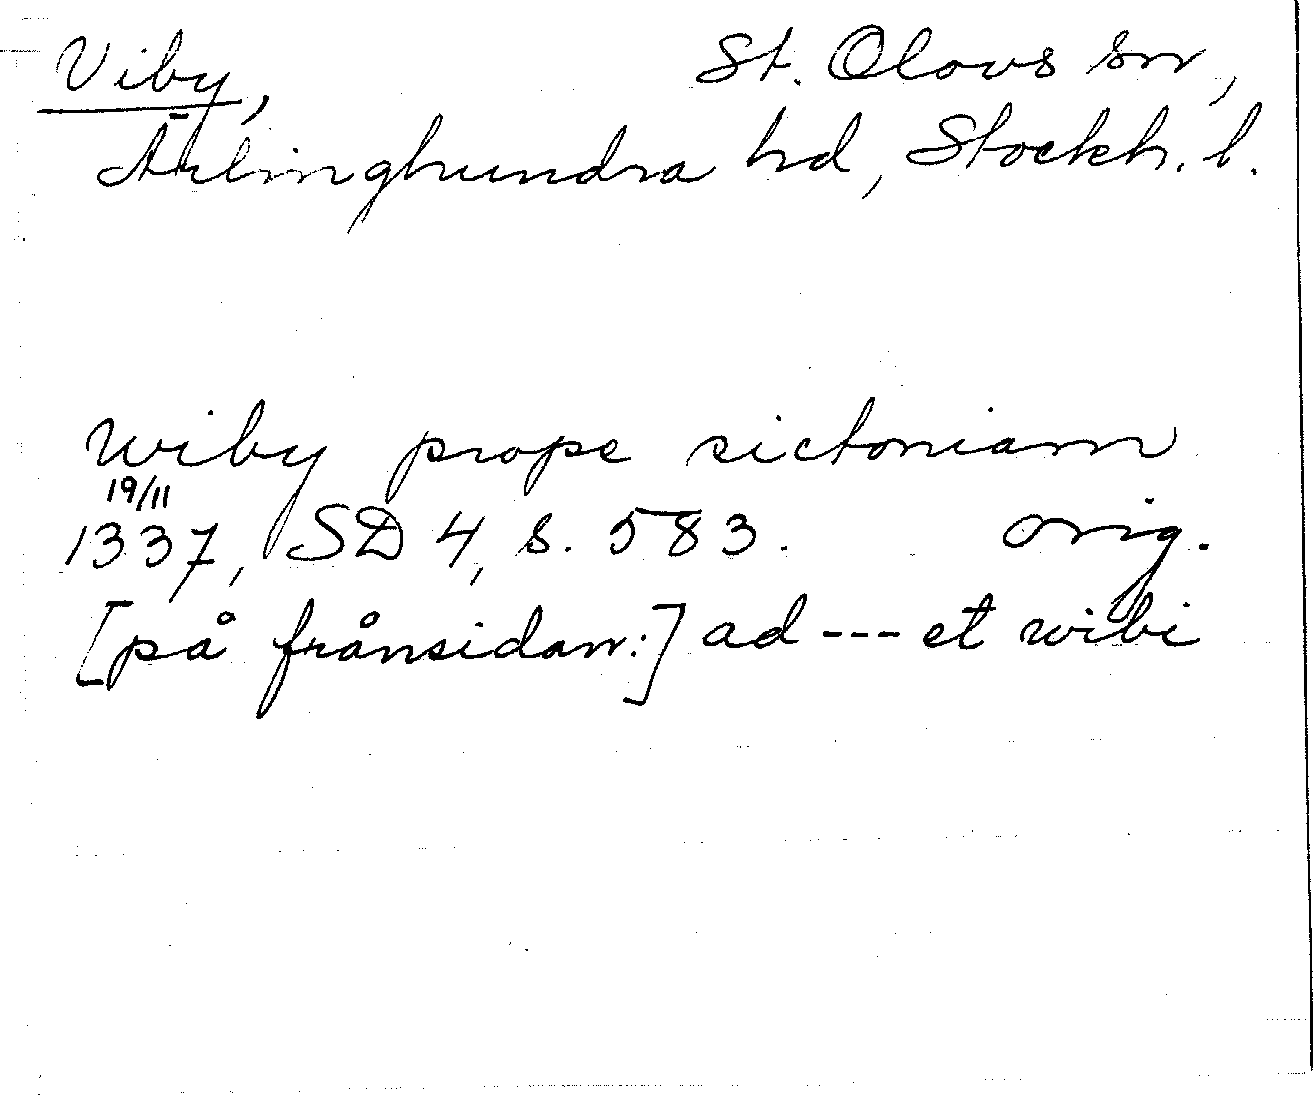 Viby, St. Olovs sn,
Ärlinghundra hd, Stockh. l.
Wiby prope sictoniam
19/11
1337, SD 4, s. 583. orig.
[på frånsidan:] ad --- et wibi